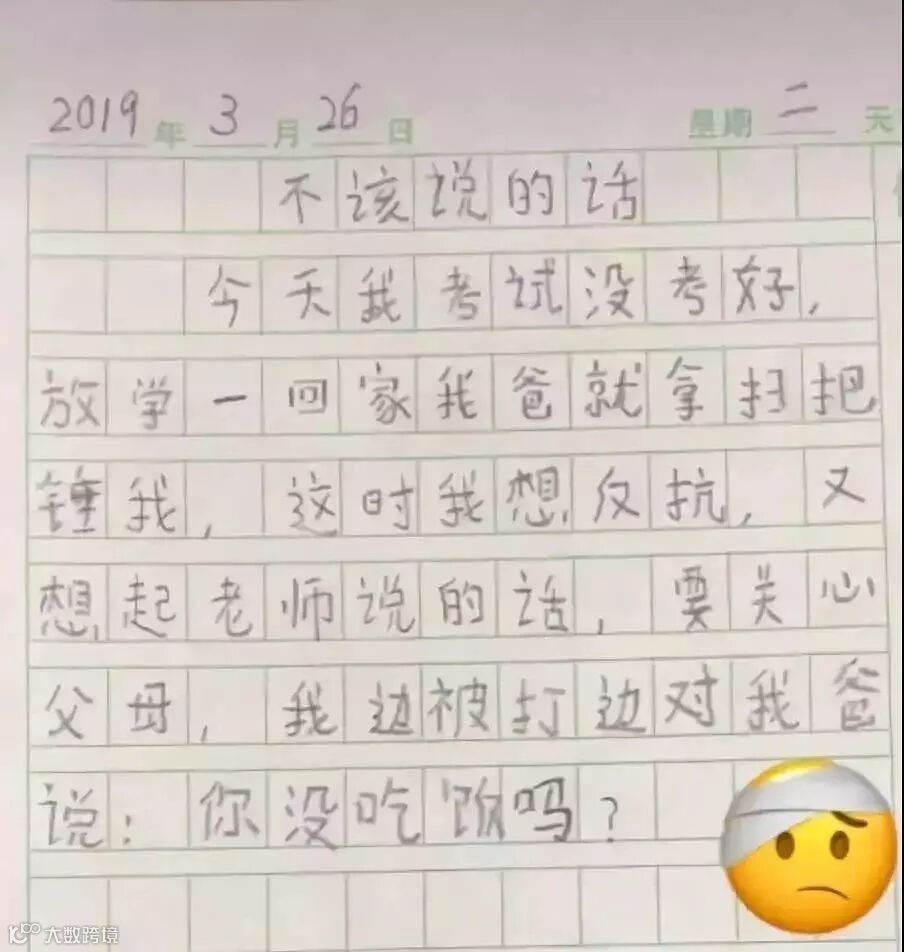 2019年3月26日 星期二 天
不该说的话
今天我考试没考好,
放学一回家我爸就拿扫把
锤我,这时我想反抗,又
想起老师说的话,要关心
父母,我边被打边对我爸
说:你没吃饭吗?
大数跨境